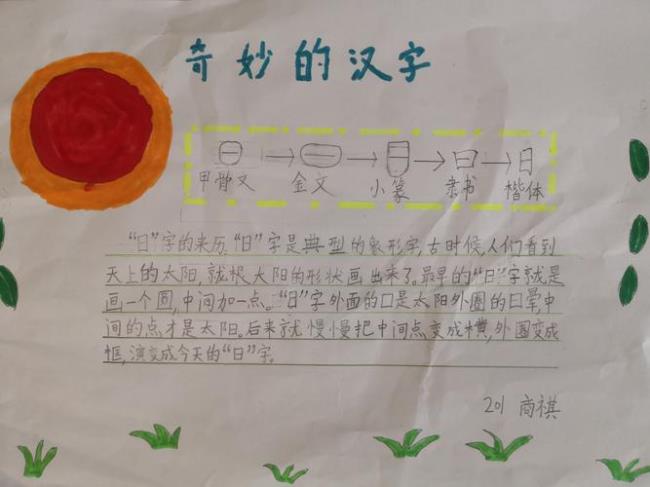 奇妙的汉字
甲骨文 金文 小篆 隶书 楷体
"日"字的来历."日"字是典型的象形字,古时候,人们看到
天上的太阳,就根太阳的形状画出来了。最早的"日"字就是
画一个圆,中间加一点。"日"字外面的口是太阳外圈的日晕,中
间的点才是太阳。后来就慢慢把中间点变成横,外围变成
框,演变成今天的"日"字。
201 商祺